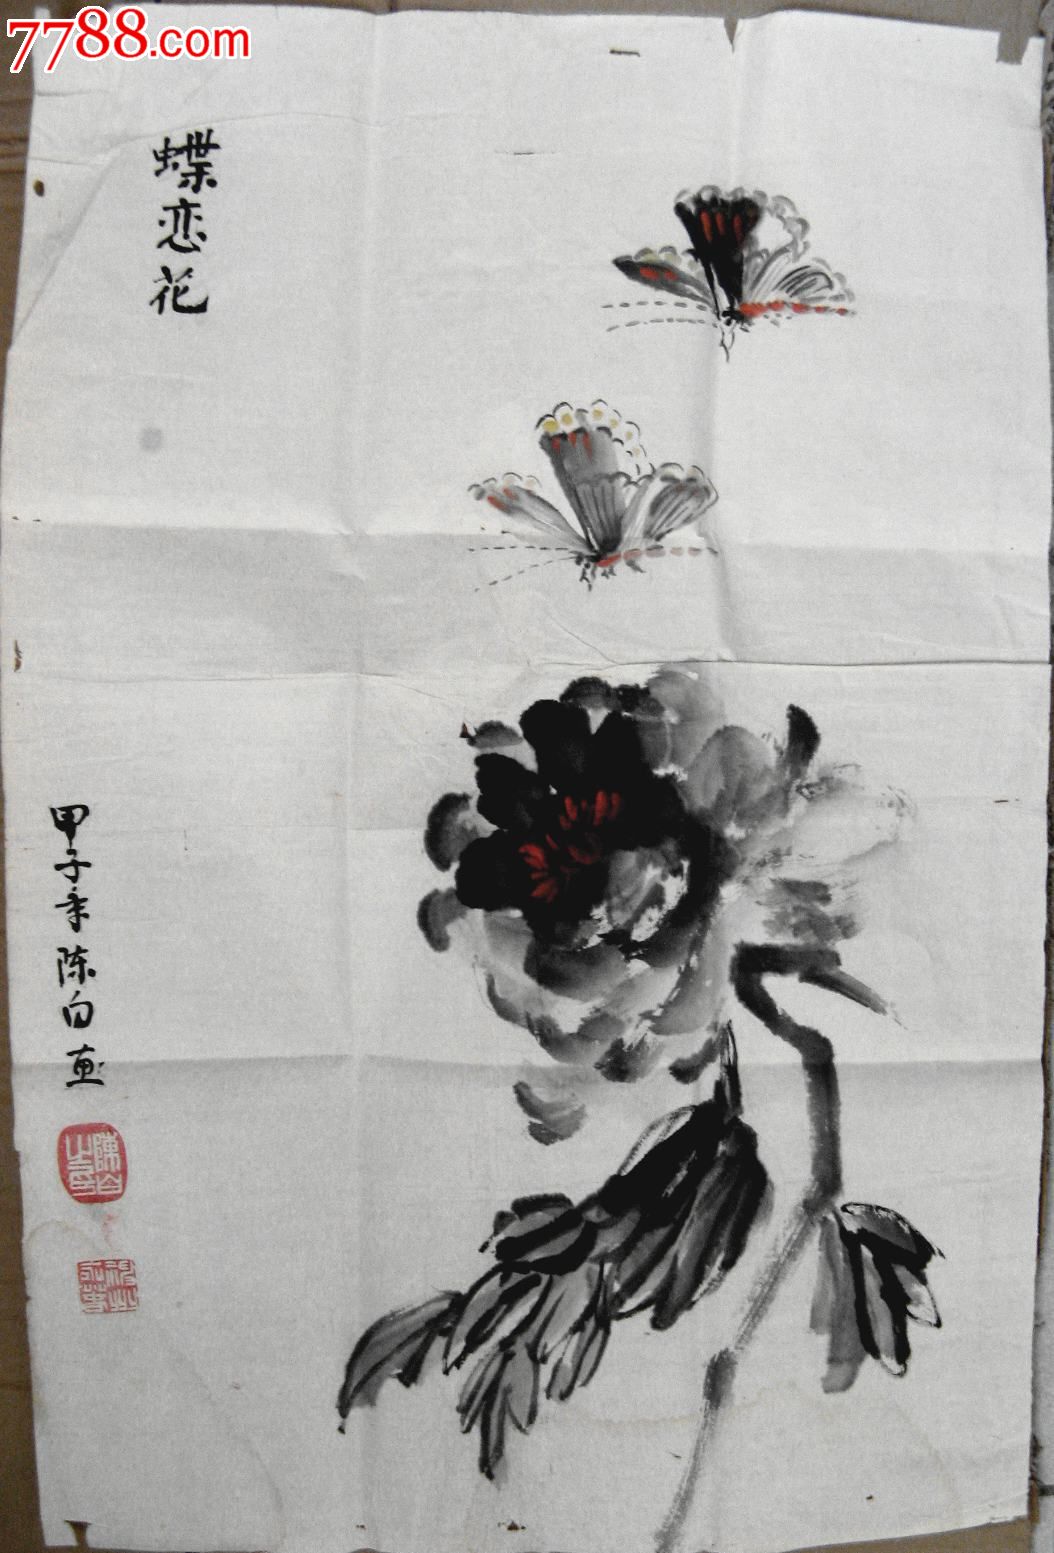 7788.com
蝶恋花
甲子年陈白画
陳白